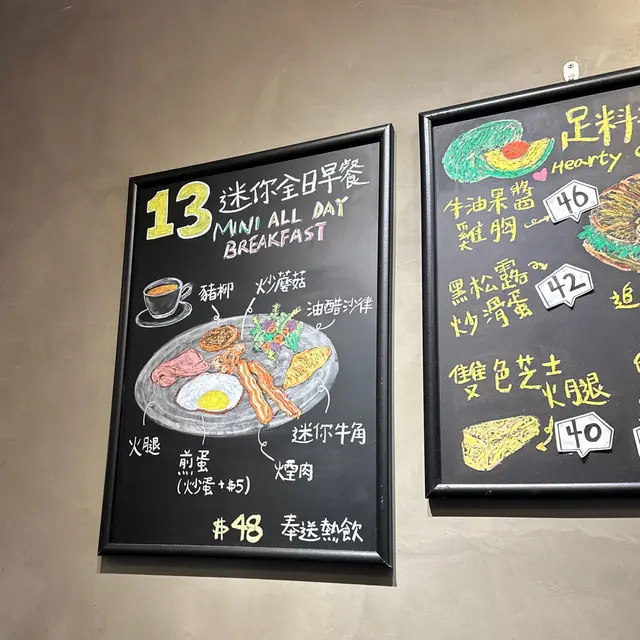 13 迷你全日早餐
MINI ALL DAY
BREAKFAST
豬柳
炒蘑菇
油醋沙律
火腿
煎蛋
(炒蛋+$5)
煙肉
迷你牛角
$48 奉送熱飲
足料
Hearty
牛油果醬
雞胸
46
黑松露
炒滑蛋
42
追
雙色芝士
火腿
40